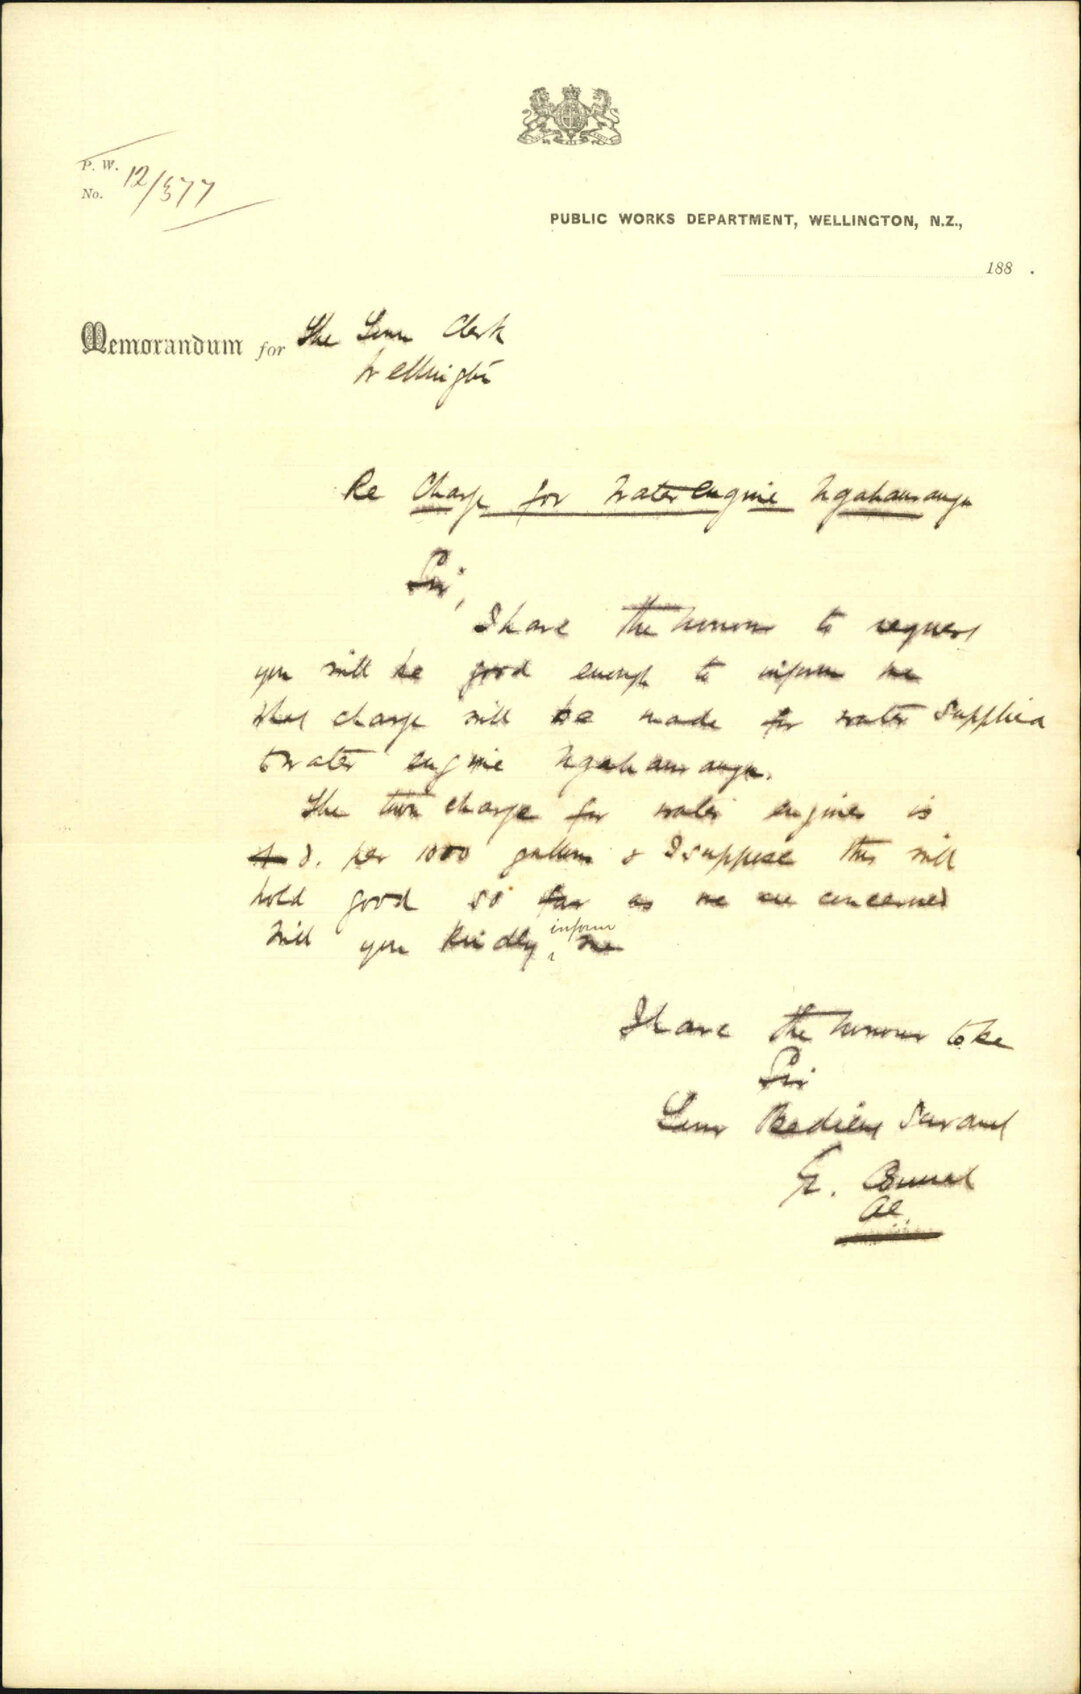 P. W.
No. 12/577
PUBLIC WORKS DEPARTMENT, WELLINGTON, N.Z.,
188 .
Memorandum for The Town Clerk
Wellington
Re Charge for Water engine Ngahauranga
Sir,
I have the honour to request
you will be good enough to inform me
what charge will be made for water supplied
to water engine Ngahauranga.
The town charge for water engines is
d. per 1000 gallons & I suppose this will
hold good so far as we are concerned
Will you kindly inform me
I have the honour to be
Sir
Your Obedient Servant
G.